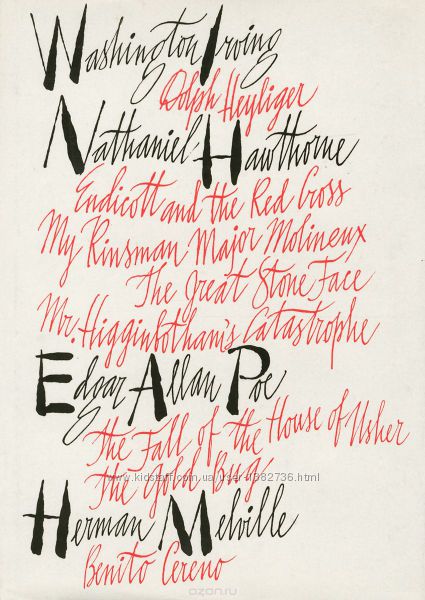 Washington Irving
Dolph Heyliger
Nathaniel Hawthorne
Endicott and the Red Cross
My Kinsman Major Molineux
The Great Stone Face
Mr. Higginbotham's Catastrophe
Edgar Allan Poe
The Fall of the House of Usher
The Gold Bug
www.kidstaff.com.ua/user-1582736.html
Herman Melville
Benito Cereno
ozon.ru